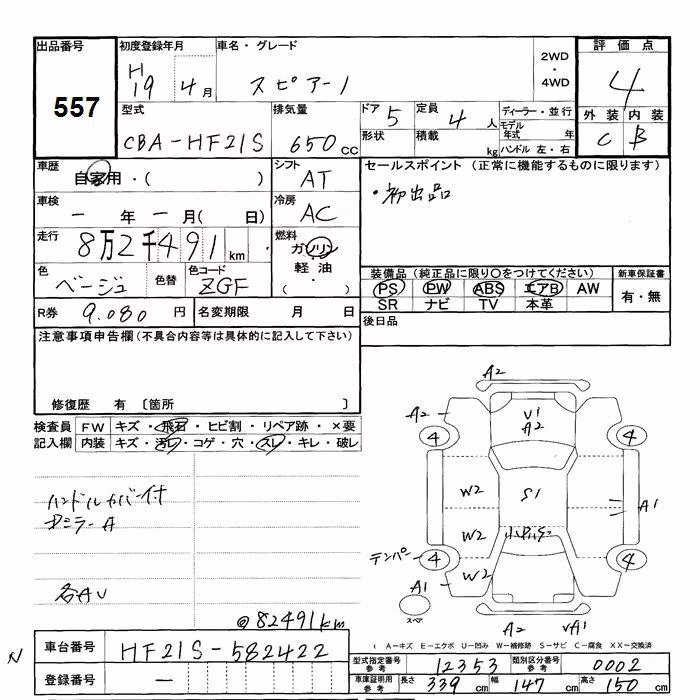 出品番号 557
初度登録年月 H19 4月
車名・グレード スピアーノ
2WD・4WD
評価点 4
外装 C 内装 B
型式 CBA-HF21S
排気量 650cc
ドア 5 定員 4人
形状 積載 kg
ディーラー・並行
モデル年式 年
ハンドル 左・右
車歴 自家用・( )
シフト AT
セールスポイント (正常に機能するものに限ります)
・初出品
車検 一年一月( 日)
冷房 AC
走行 8万2千491km
燃料 ガソリン 軽油 ( ・ )
色 ベージュ 色替 色コード ZGF
装備品(純正品に限り○をつけてください) 新車保証書
PS PW ABS エアB AW 有・無
SR ナビ TV 本革
R券 9.080円 名変期限 月 日
後日品
注意事項申告欄(不具合内容等は具体的に記入して下さい)
修復歴 有 〔箇所 〕
検査員 FW キズ・飛石・ヒビ割・リペア跡・×要
記入欄 内装 キズ・汚レ・コゲ・穴・スレ・キレ・破レ
ハンドルカバー付
ドミラーA
各AU
@82491km
A2
A2
U1
A2
4
4
W2
S1
A1
W2
テンパー
4
4
W2
A1
スペア
A2
UA1
( A-キズ E-エクボ U-凹み W-補修跡 S-サビ C-腐食 XX-交換済
N
車台番号 HF21S-582422
登録番号 一
型式指定番号参考 12353 類別区分番号参考 0002
車庫証明用参考 長さ 339cm 幅 147cm 高さ 150cm